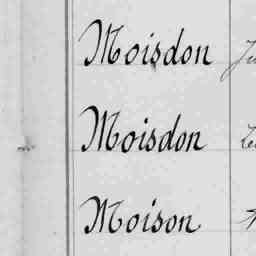 Moisdon
Moisdon
Moison